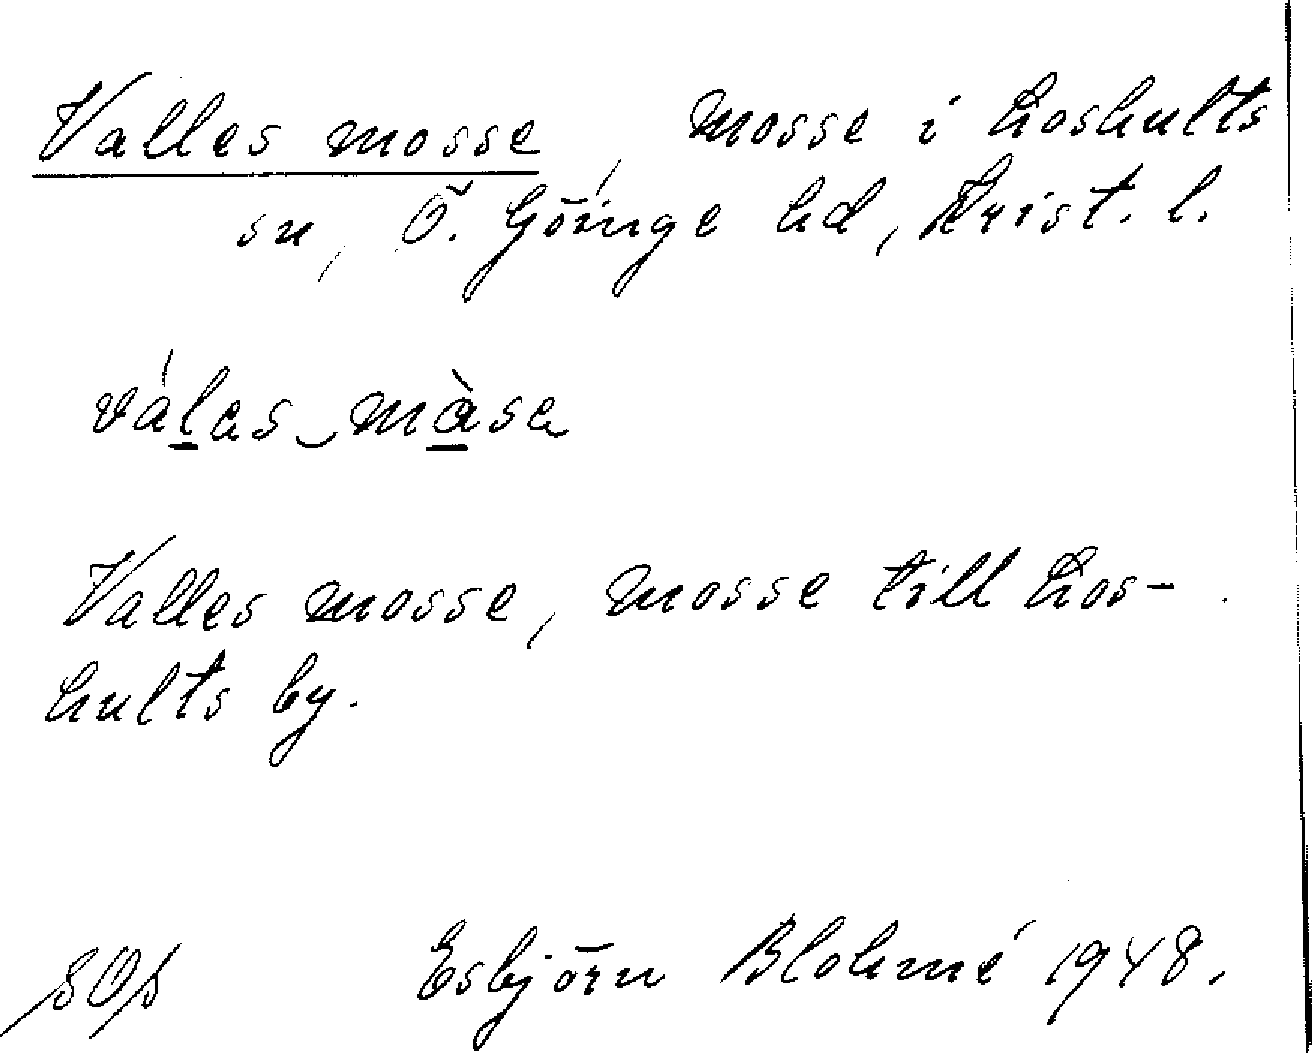 Valles mosse, mosse i Loshults
sn, Ö. Göinge hd, Krist. l.
válas màsa
Valles mosse, mosse till Los-
hults by.
Esbjörn Blohmé 1948.